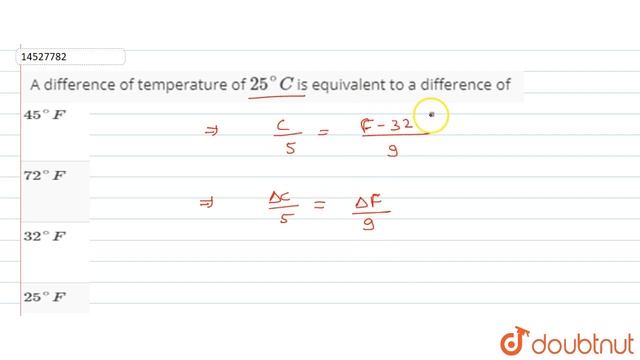 14527782
A difference of temperature of 25° C is equivalent to a difference of
45° F
⇒ C/5 = F-32/9
72° F
⇒ ΔC/5 = ΔF/9
32° F
25° F
doubtnut